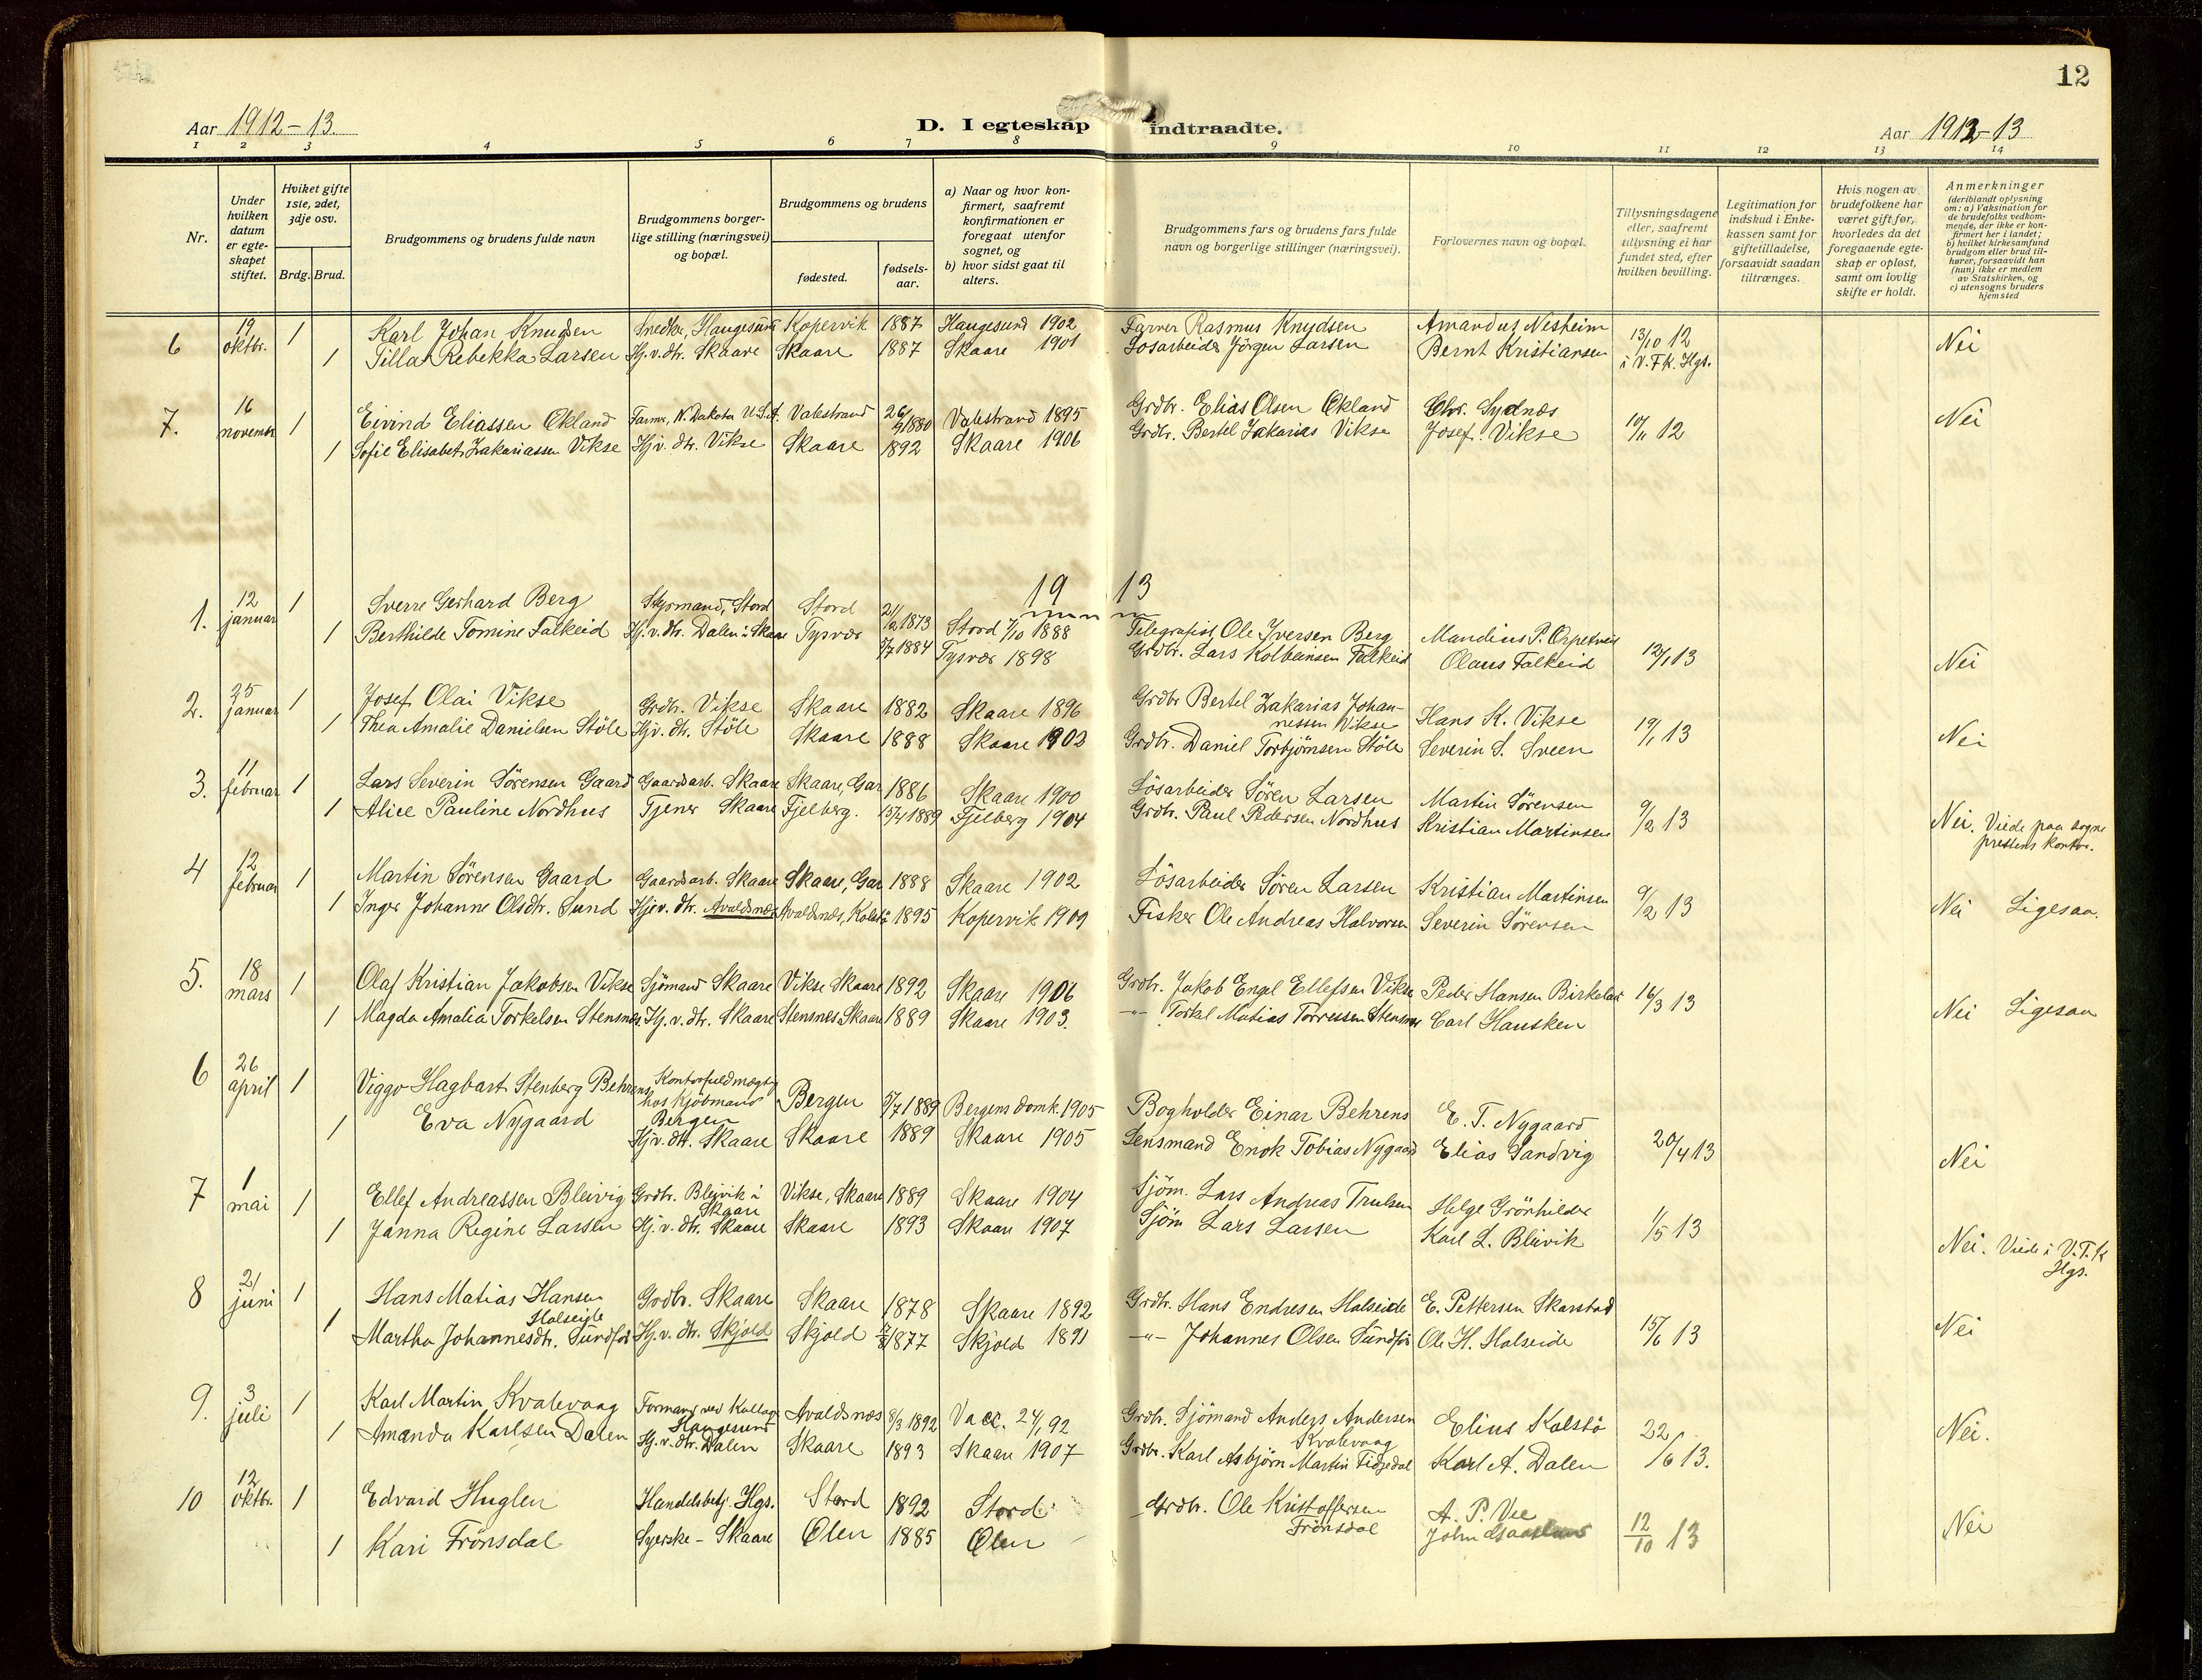 12
Aar 1912-13.
D. I egteskap indtraadte.
Aar 1912-13
1 2 3 4 5 6 7 8 9 10 11 12 13 14
Nr.
Under hvilken datum er egteskapet stiftet.
Hviket gifte 1ste, 2det, 3dje osv.
Brdg. Brud.
Brudgommens og brudens fulde navn
Brudgommens borgerlige stilling (næringsvei) og bopæl.
Brudgommens og brudens
fødested.
fødselsaar.
a) Naar og hvor konfirmert, saafremt konfirmationen er foregaat utenfor sognet, og
b) hvor sidst gaat til alters.
Brudgommens fars og brudens fars fulde navn og borgerlige stillinger (næringsvei).
Forlovernes navn og bopæl.
Tillysningsdagene eller, saafremt tillysning ei har fundet sted, efter hvilken bevilling.
Legitimation for indskud i Enkekassen samt for giftetilladelse, forsaavidt saadan tiltrænges.
Hvis nogen av brudefolkene har været gift før, hvorledes da det foregaaende egteskap er opløst, samt om lovlig skifte er holdt.
Anmerkninger (deriblandt oplysning om: a) Vaksination for de brudefolks vedkommende, der ikke er konfirmert her i landet; b) hvilket kirkesamfund brudgom eller brud tilhører, forsaavidt han (hun) ikke er medlem av Statskirken, og c) utensogns bruders hjemsted
6 19 oktbr. 1 Karl Johan Knudsen Snedker, Haugesund Kopervik 1887 Haugesund 1902 Farver Rasmus Knudsen Amandus Nesheim 13/10 12 i V.F.K. Hgs. Nei
1 Tilla Rebekka Larsen Hj.v.dtr. Skaare Skaare 1887 Skaare 1901 Løsarbeider Jörgen Larsen Bernt Kristiansen
7. 16 novembr 1 Eivind Eliassen Økland Farmer, N. Dakota U.S.A. Valestrand 26/9 1880 Valestrand 1895 Grdbr. Elias Olsen Økland Chr. Sydnæs 10/11 12 Nei
1 Sofie Elisabet Zakariassen Vikse Hj.v.dtr. Vikse Skaare 1892 Skaare 1906 Grdbr. Bertel Zakarias Vikse Josef Vikse
1913
1. 12 januar 1 Sverre Gerhard Berg Styrmand, Stord Stord 21/12 1873 Stord 7/10 1888 Telegrafist Ole Iversen Berg Mandius P. 12/1 13 Nei
1 Berthilde Tomine Falkeid Hj.v.dtr. Dalen i Skaare Tysvær 5/7 1884 Tysvær 1898 Grdbr. Lars Kolbeinsen Falkeid Olaus Falkeid
2. 25 januar 1 Josef Olai Vikse Grdbr. Vikse Skaare 1882 Skaare 1896 Grdbr Bertel Zakarias Johannessen Vikse Hans K. Vikse 19/1 13 Nei
1 Thea Amalie Danielsen Stöle Hj.v.dtr. Stöle Skaare 1888 Skaare 1903 Grdbr. Daniel Torbjörnsen Stöle Severin S. Sveen
3. 11 februar 1 Lars Severin Sørensen Gaard Gaardsarb. Skaare Skaare, Gar 1886 Skaare 1900 Lösarbeider Sören Larsen Martin Sørensen 9/2 13 Nei. Viede paa sogneprestens kontor.
1 Alice Pauline Nordhus Tjener Skaare Fjelberg. 15/4 1889 Fjelberg 1904 Grdbr. Paul Pedersen Nordhus Kristian Martinsen
4 12 februar 1 Martin Sørensen Gaard Gaardsarb. Skaare Skaare, Gar 1888 Skaare 1902 Lösarbeider Sören Larsen Kristian Martinsen 9/2 13 Nei Ligesaa.
1 Inger Johanne Olsdtr. Sund Hj.v.dtr. Avaldsnæs Avaldsnæs, Kolstö 1895 Kopervik 1909 Fisker Ole Andreas Halvorsen Severin Sörensen
5. 18 mars 1 Olaf Kristian Jakobsen Vikse Sjömand Skaare Vikse Skaare 1892 Skaare 1906 Grdbr. Jakob Engel Ellefsen Vikse Peder Hansen Birkeland 16/3 13 Nei Ligesaa
1 Magda Amalia Torkelsen Stensnæs Hj.v.dtr. Skaare Stensnes Skaare 1889 Skaare 1903. -"- Torkel Matias Torressen Stensnæs Carl Hausken
6 26 april 1 Viggo Hagbart Stenberg Behrens Kontorfuldmægtig hos Kjöbmand Bergen Bergen 5/7 1889 Bergens domk. 1905 Bogholder Einar Behrens E. T. Nygaard 20/4 13 Nei
1 Eva Nygaard Hj.v.dtr. Skaare Skaare 1889 Skaare 1905 Lensmand Enok Tobias Nygaard Elias Sandvig
7 1 mai 1 Ellef Andreassen Bleivig Grdbr. Bleivik i Skaare Vikse, Skaare 1889 Skaare 1904 Sjöm. Lars Andreas Trulsen Helge Grönhilder 1/5 13 Nei. Viede i V.F.K Hgs.
1 Janna Regine Larsen Hj.v.dtr. Skaare Skaare 1893 Skaare 1907 Sjöm Lars Larsen Karl L. Bleivik
8 21 juni 1 Hans Matias Hansen Halseide Grdbr. Skaare Skaare 1878 Skaare 1892 Grdbr. Hans Endresen Halseide E. Pettersen Skarstad 15/6 13 Nei
1 Martha Johannesdtr. Sundför Hj.v.dtr. Skjold Skjold 7/8 1877 Skjold 1891 -"- Johannes Olsen Sundför Ole H. Halseide
9. 3 juli 1 Karl Martin Kvalevaag Formand ved Kullag Haugesund Avaldsnæs 8/3 1892 Vacc. 24/, 92 Grdbr. Sjömand Anders Andersen Kvalevaag Elius Kolstö 22/6 13. Nei.
1 Amanda Karlsen Dalen Hj.v.dtr. Dalen Skaare 1893 Skaare 1907 Grdbr. Karl Asbjörn Martin Karl A. Dalen
10 12 oktbr. 1 Edvard Huglen Handelsbetj. Hgs. Stord 1892 Stord Grdbr. Ole Kristoffersen Frönsdal A. P. Vee 12/10 13 Nei
1 Kari Frönsdal Syerske - Skaare Ølen 1885 Ølen John